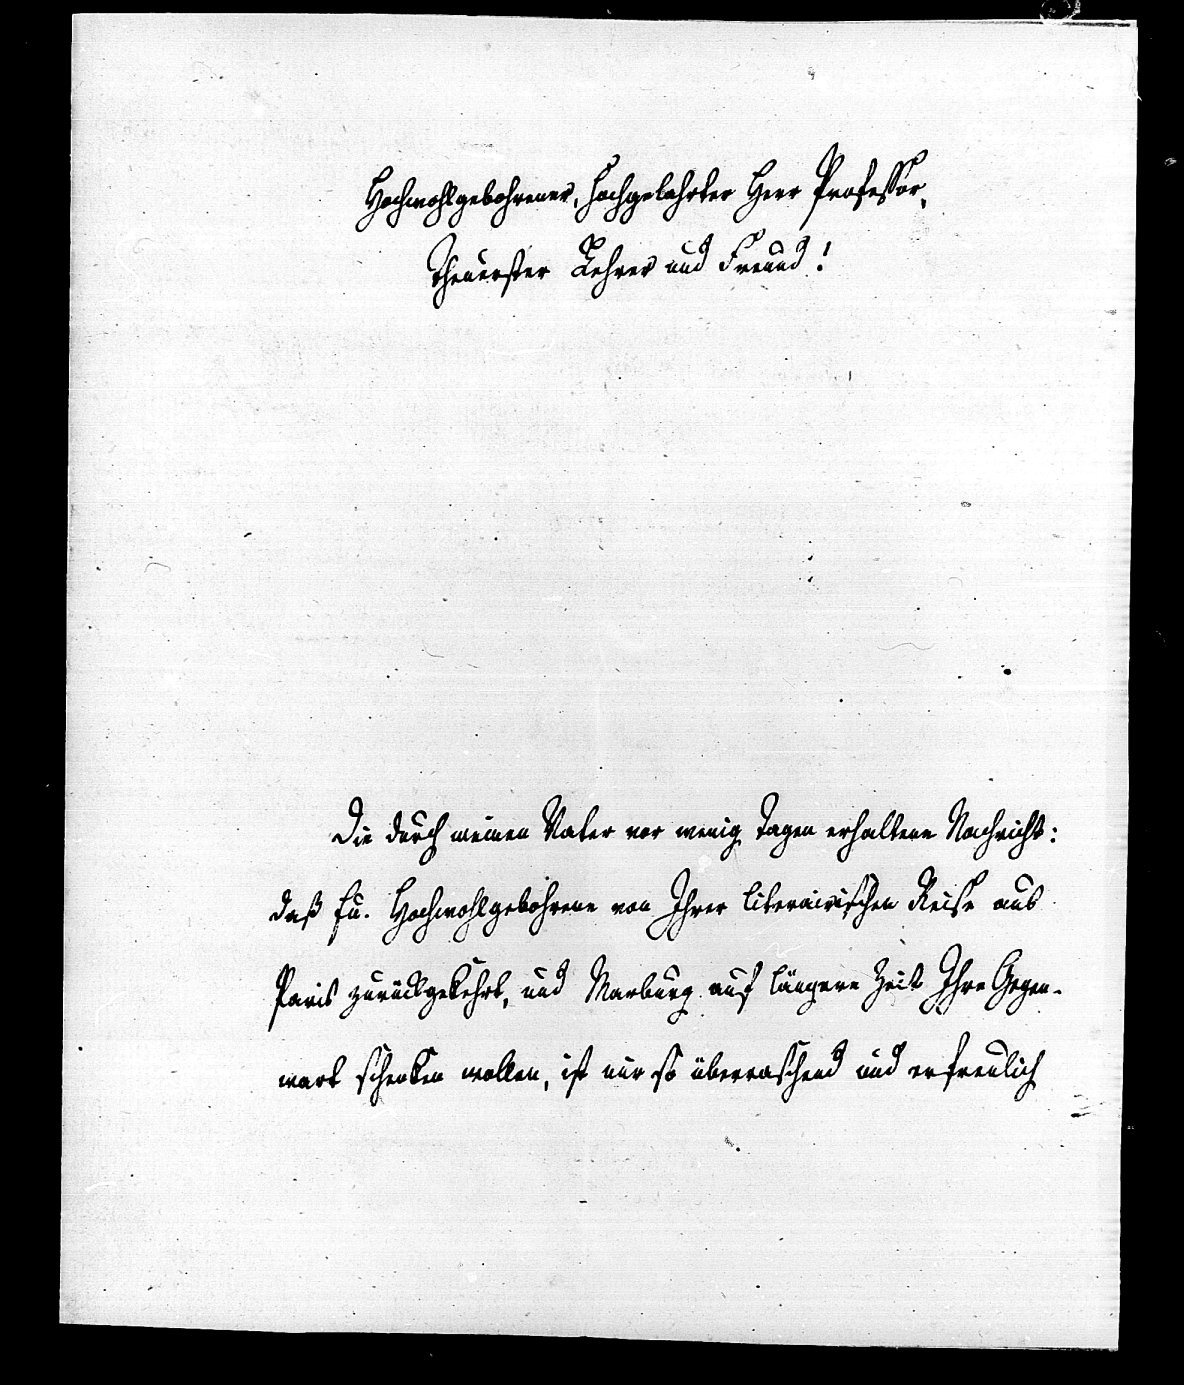 Hochwohlgebohrener, Hochgelahrter Herr Professor,
Theuerster Lehrer und Freund!
Die durch meinen Vater vor wenig Tagen erhaltene Nachricht:
daß Eu. Hochwohlgebohrene von Ihrer literairischen Reise aus
Paris zurückgekehrt, und Marburg auf längere Zeit Ihre Gegen-
wart schenken wollen, ist nur so überraschend und erfreulich